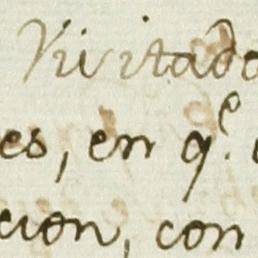 Visitado
es, en q.e
cion, con